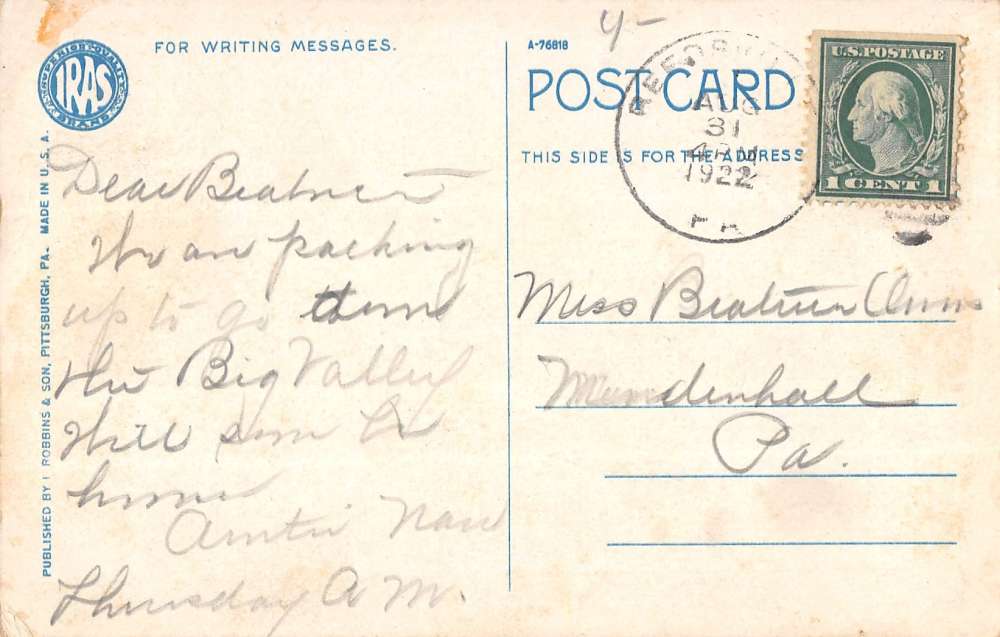 FOR WRITING MESSAGES.
SUPERIOR QUALITY
IRAS
BRAND
PUBLISHED BY I ROBBINS & SON, PITTSBURGH, PA. MADE IN U. S. A.
Dear Beatrice
We are packing
up to go down
thru Big Valley
Will soon be
home
Auntie Nan
Thursday A M.
A-76818
POST CARD
THIS SIDE IS FOR THE ADDRESS
AUG
31
1922
PA
U.S. POSTAGE
1 CENT 1
Miss Beatrice
Mendenhall
Pa.